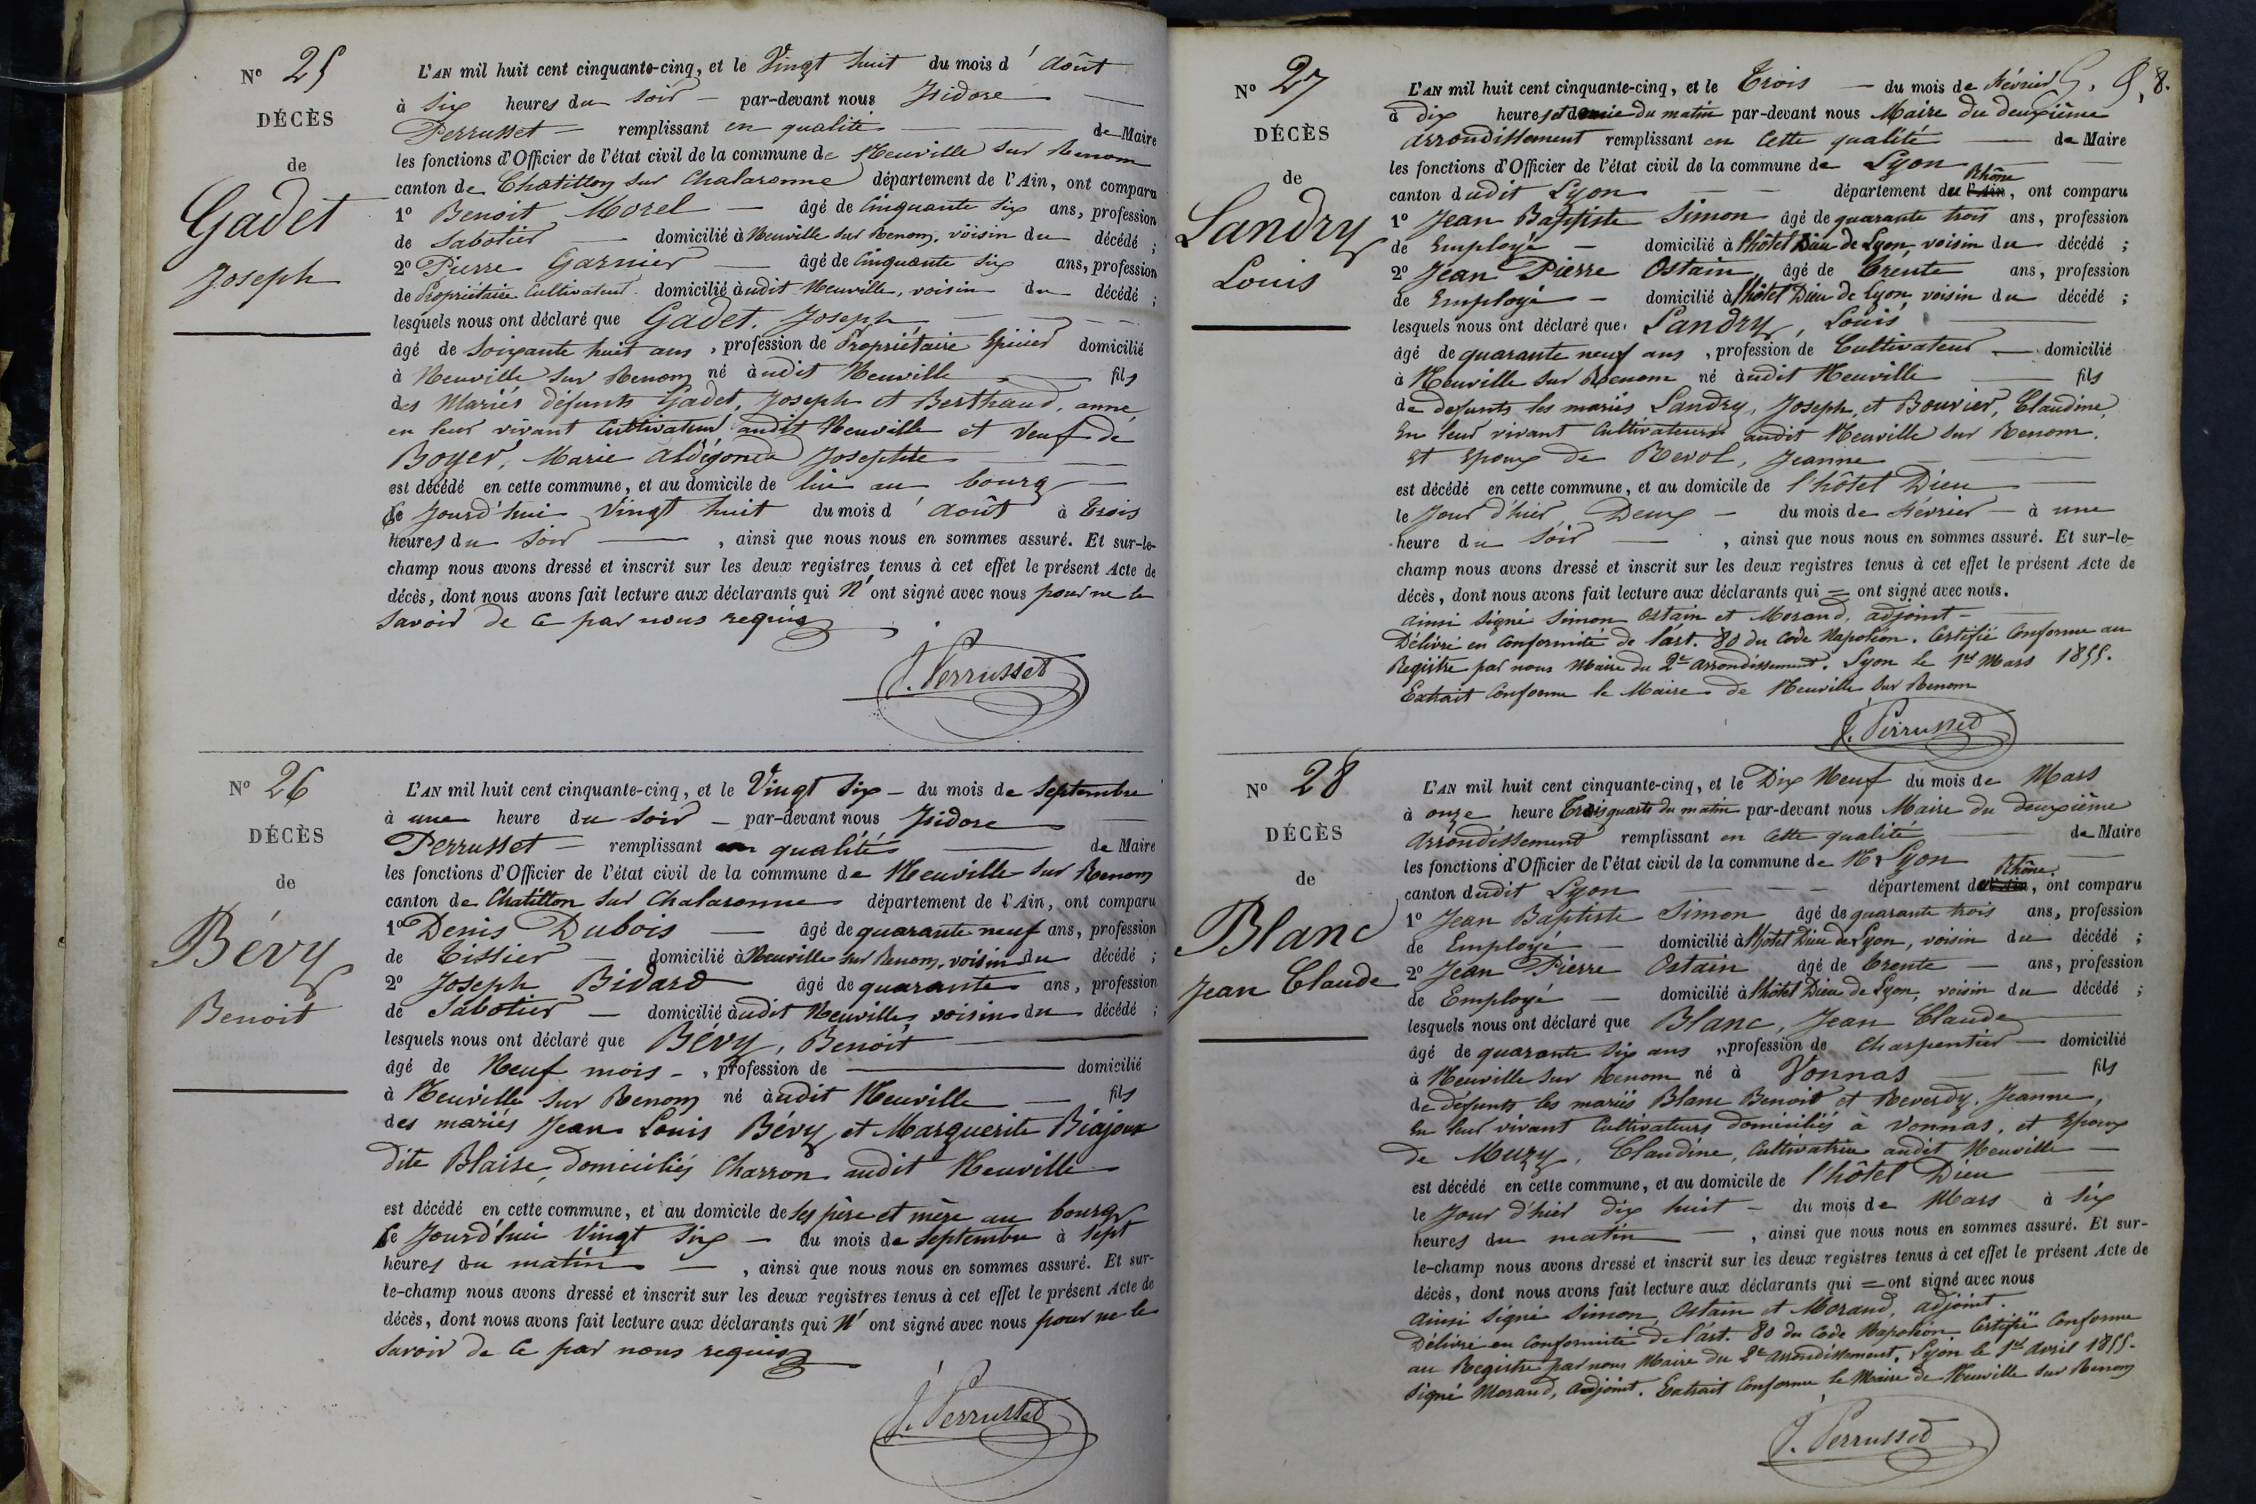 N° 25
DÉCÈS
de
Gadet
Joseph
L'AN mil huit cent cinquante-cinq, et le Vingt huit du mois d'Août
à Six heures du Soir — par-devant nous Isidore —
Perrusset — remplissant en qualité — de Maire
les fonctions d'Officier de l'état civil de la commune de Neuville sur Renom
canton de Chatillon sur Chalaronne département de l'Ain, ont comparu
1° Benoit Morel — âgé de Cinquante six ans, profession
de Sabotier — domicilié à Neuville sur Renom, voisin du décédé ;
2° Pierre Garnier — âgé de Cinquante six ans, profession
de Propriétaire Cultivateur domicilié audit Neuville, voisin du décédé ;
lesquels nous ont déclaré que Gadet, Joseph — — —
âgé de Soixante huit ans, profession de Propriétaire Epicier domicilié
à Neuville sur Renom né audit Neuville — fils
des Mariés défunts Gadet, Joseph et Berthaud, anne,
en leur vivant Cultivateurs audit Neuville et Veuf de
Boyer, Marie Aldégonde Josephte — —
est décédé en cette commune, et au domicile de lui au bourg —
Ce Jourd'hui Vingt huit du mois d'Août à Trois
heures du Soir — , ainsi que nous nous en sommes assuré. Et sur-le-
champ nous avons dressé et inscrit sur les deux registres tenus à cet effet le présent Acte de
décès, dont nous avons fait lecture aux déclarants qui N' ont signé avec nous pour ne le
Savoir de Ce par nous requis
J. Perrusset
N° 26
DÉCÈS
de
Bévy
Benoit
L'AN mil huit cent cinquante-cinq, et le Vingt Six — du mois de Septembre
à une heure du Soir — par-devant nous Isidore —
Perrusset — remplissant en qualités — de Maire
les fonctions d'Officier de l'état civil de la commune de Neuville sur Renom
canton de Chatillon sur Chalaronne département de l'Ain, ont comparu
1° Denis Dubois — âgé de quarante neuf ans, profession
de Tissier — domicilié à Neuville sur Renom, voisin du décédé ;
2° Joseph Bidard âgé de quarante ans, profession
de Sabotier — domicilié audit Neuville, voisin du décédé ;
lesquels nous ont déclaré que Bévy, Benoit —
âgé de Neuf mois —, profession de — domicilié
à Neuville sur Renom né audit Neuville — fils
des mariés Jean Louis Bévy et Marguerite Biajoux
dite Blaise, domiciliés Charron audit Neuville
est décédé en cette commune, et au domicile de ses père et mère au bourg
Ce Jourd'hui Vingt Six — du mois de Septembre à Sept
heures du matin — , ainsi que nous nous en sommes assuré. Et sur-
le-champ nous avons dressé et inscrit sur les deux registres tenus à cet effet le présent Acte de
décès, dont nous avons fait lecture aux déclarants qui N' ont signé avec nous pour ne le
Savoir de Ce par nous requis
J. Perrusset
N° 27
DÉCÈS
de
Landry
Louis
L'AN mil huit cent cinquante-cinq, et le Trois — du mois de Février
à dix heures et demie du matin par-devant nous Maire du deuxième
Arrondissement remplissant en Cette qualité — de Maire
les fonctions d'Officier de l'état civil de la commune de Lyon —
canton dudit Lyon — — département du l'Ain Rhône, ont comparu
1° Jean Baptiste Simon âgé de quarante trois ans, profession
de Employé — domicilié à l'hôtel Dieu de Lyon voisin du décédé ;
2° Jean Pierre Ostain âgé de Trente ans, profession
de Employé — domicilié à l'hôtel Dieu de Lyon voisin du décédé ;
lesquels nous ont déclaré que Landry, Louis —
âgé de quarante neuf ans, profession de Cultivateur — domicilié
à Neuville sur Renom né audit Neuville — fils
de defunts les mariés Landry, Joseph, et Bouvier, Claudine,
En leur vivant Cultivateurs audit Neuville sur Renom,
Et Epoux de Revol, Jeanne —
est décédé en cette commune, et au domicile de l'hôtel Dieu —
le Jour d'hier Deux — du mois de Février — à une
heure du Soir — , ainsi que nous nous en sommes assuré. Et sur-le-
champ nous avons dressé et inscrit sur les deux registres tenus à cet effet le présent Acte de
décès, dont nous avons fait lecture aux déclarants qui = ont signé avec nous.
ainsi signé Simon Ostain et Morand, adjoint —
Délivré en Conformité de l'art. 80 du Code Napoléon. Certifié Conforme au
Registre par nous Maire du 2e arrondissement. Lyon le 1er Mars 1855.
Extrait Conforme le Maire de Neuville sur Renom
J. Perrusset
N° 28
DÉCÈS
de
Blanc
Jean Claude
L'AN mil huit cent cinquante-cinq, et le Dix Neuf du mois de Mars
à onze heure Trois quarts du matin par-devant nous Maire du deuxième
Arrondissement remplissant en Cette qualité — de Maire
les fonctions d'Officier de l'état civil de la commune de Lyon —
canton dudit Lyon — — — département du l'Ain Rhône, ont comparu
1° Jean Baptiste Simon âgé de quarante trois ans, profession
de Employé — domicilié à l'hôtel Dieu de Lyon, voisin du décédé ;
2° Jean Pierre Ostain âgé de Trente — ans, profession
de Employé — domicilié à l'hôtel Dieu de Lyon, voisin du décédé ;
lesquels nous ont déclaré que Blanc, Jean Claude —
âgé de quarante Six ans, profession de Charpentier — domicilié
à Neuville sur Renom né à Vonnas — — fils
de défunts les mariés Blanc Benoit et Reverdy, Jeanne,
En leur vivant Cultivateurs domiciliés à Vonnas, et Epoux
de Muzy, Claudine, Cultivatrice audit Neuville —
est décédé en cette commune, et au domicile de l'hôtel Dieu —
le Jour d'hier dix huit — du mois de Mars à Six
heures du matin — , ainsi que nous nous en sommes assuré. Et sur-
le-champ nous avons dressé et inscrit sur les deux registres tenus à cet effet le présent Acte de
décès, dont nous avons fait lecture aux déclarants qui = ont signé avec nous
ainsi signé Simon, Ostain et Morand, adjoint.
Délivré en Conformité de l'art. 80 du Code Napoléon. Certifié Conforme
au Registre par nous Maire du 2e Arrondissement. Lyon le 1er Avril 1855.
Signé Morand, adjoint. Extrait Conforme le Maire de Neuville sur Renom
J. Perrusset